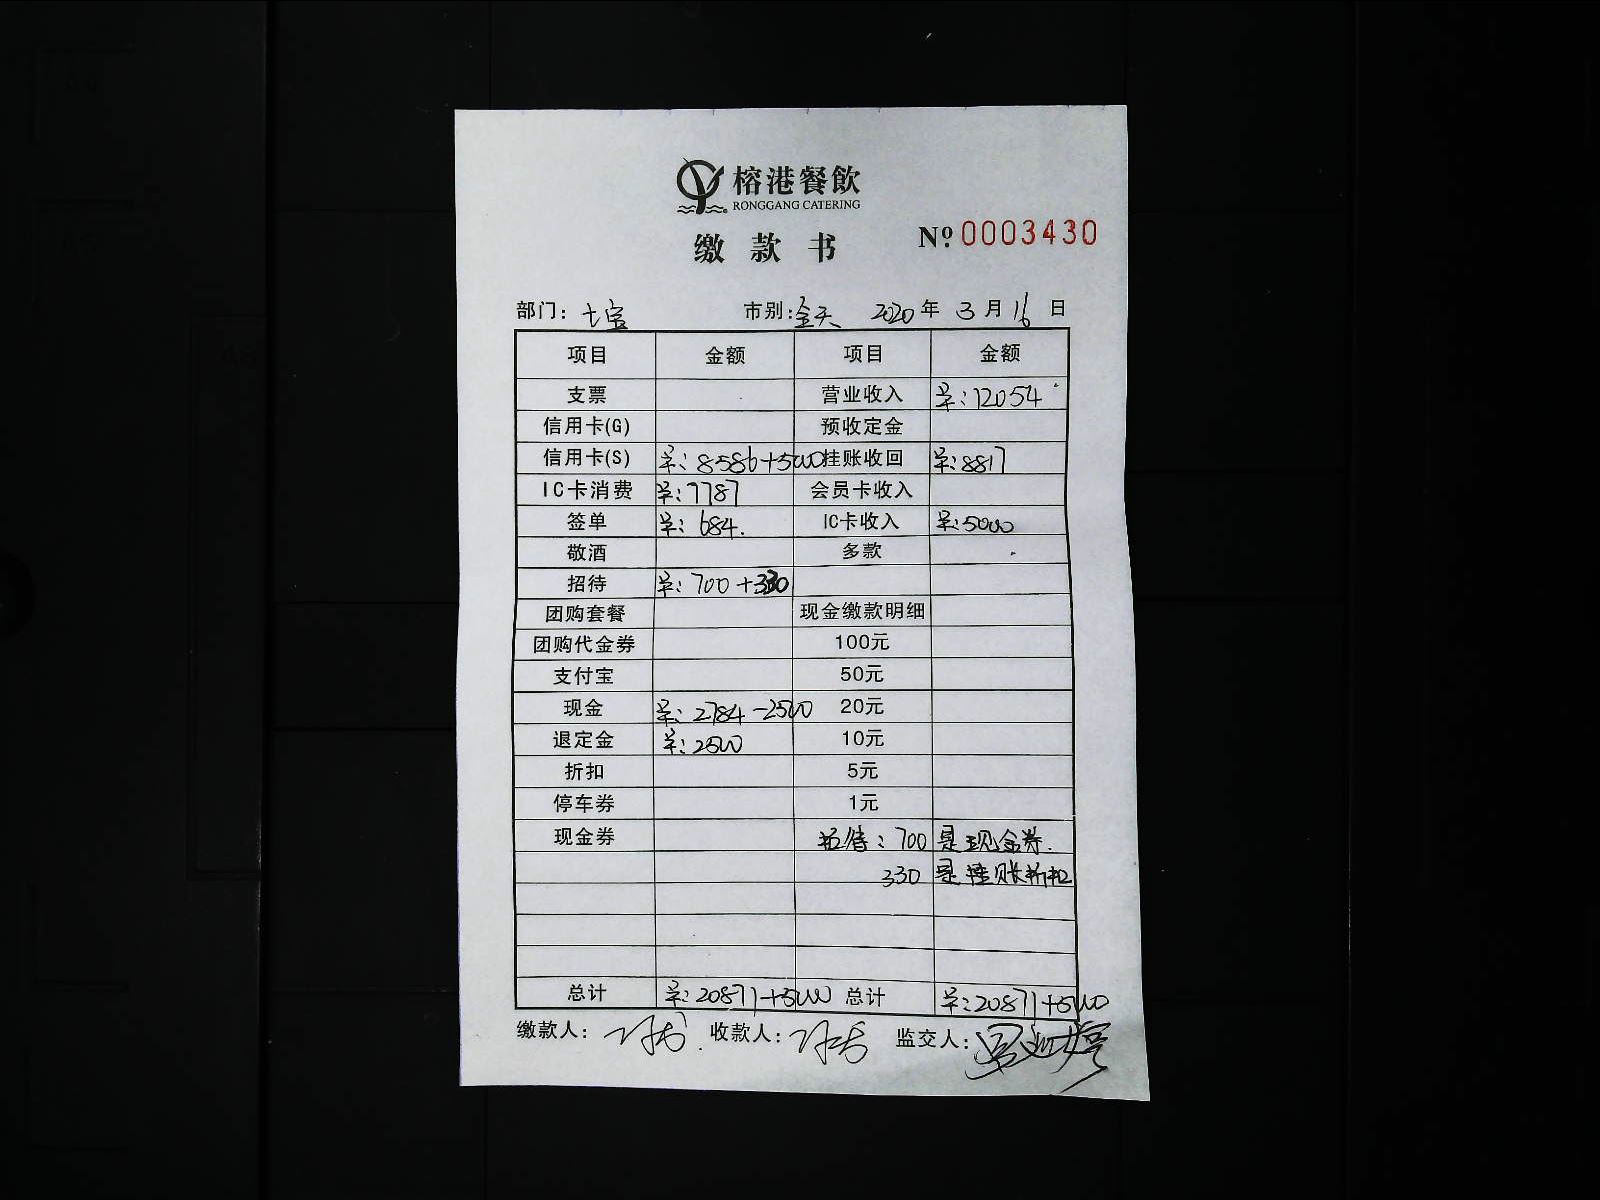 榕港餐飲
RONGGANG CATERING
缴款书
Nº 0003430
部门: 七宝 市别: 全天 2020年3月16日
项目 金额 项目 金额
支票 营业收入 羊: 12054
信用卡(G) 预收定金
信用卡(S) 羊: 8586+5000 挂账收回 羊: 8817
IC卡消费 羊: 7787 会员卡收入
签单 羊: 684. IC卡收入 羊: 5000
敬酒 多款
招待 羊: 700+330
团购套餐 现金缴款明细
团购代金券 100元
支付宝 50元
现金 羊: 2784-2500 20元
退定金 羊: 2500 10元
折扣 5元
停车券 1元
现金券 招待: 700 是现金券.
330 是挂账折扣
总计 羊: 20871+5000 总计 羊: 20871+5000
缴款人: 收款人: 监交人: